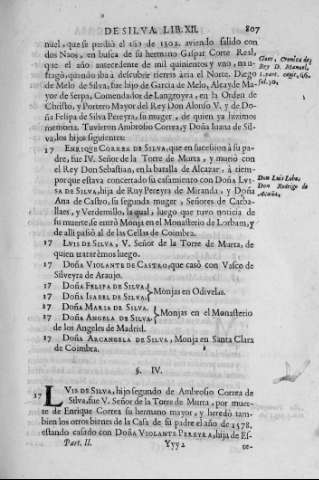 DE SILVA. LIB. XII. 807
nuel, que se perdiò el año de 1502. aviendo salido con
dos Naos, en busca de su hermano Gaspar Corte Real,
que el año antecedente de mil quinientos y vno, nau-
fragò, quando iba à descubrir tierras àzia el Norte. Diego
de Melo de Silva, fue hijo de Garcia de Melo, Alcayde Ma-
yor de Serpa, Comendador de Langroyva, en la Orden de
Christo, y Portero Mayor del Rey Don Alonso V. y de Do-
ña Felipa de Silva Pereyra, su muger, de quien ya hizimos
memoria. Tuvieron Ambrosio Correa, y Doña Iuana de Sil-
va, los hijos siguientes:
17 ENRIQUE CORREA DE SILVA, que en sucession à su pa-
dre, fue IV. Señor de la Torre de Murta, y muriò con
el Rey Don Sebastian, en la batalla de Alcazar, à tiem-
po que estava concertado su casamiento con DOÑA LVI-
SA DE SILVA, hija de Ruy Pereyra de Miranda, y Doña
Ana de Castro, su segunda muger, Señores de Carba-
llaes, y Verdemillo, la qual, luego que tuvo noticia de
su muerte, se entrò Monja en el Monasterio de Lorbam, y
de alli passò al de las Cellas de Coimbra.
17 LVIS DE SILVA, V. Señor de la Torre de Murta, de
quien trataremos luego.
17 DOÑA VIOLANTE DE CASTRO, que casò con Vasco de
Silveyra de Araujo.
17 DOÑA FELIPA DE SILVA.
17 DOÑA ISABEL DE SILVA. Monjas en Odivelas.
17 DOÑA MARIA DE SILVA.
17 DOÑA ANGELA DE SILVA. Monjas en el Monasterio
de los Angeles de Madrid.
17 DOÑA ARCANGELA DE SILVA, Monja en Santa Clara
de Coimbra.
§. IV.
17 LVIS DE SILVA, hijo segundo de Ambrosio Correa de
Silva, fue V. Señor de la Torre de Murta, por muer-
te de Enrique Correa su hermano mayor, y heredò tam-
bien los otros bienes de la Casa de su padre el año de 1578.
estando casado con DOÑA VIOLANTE PEREYRA, hija de Es-
Part. II. Yyy 2 te-
Goes, Cronica del
Rey D. Manuel,
1. part. cap.
fol.
Don Luis Lobo,
Don Rodrigo de